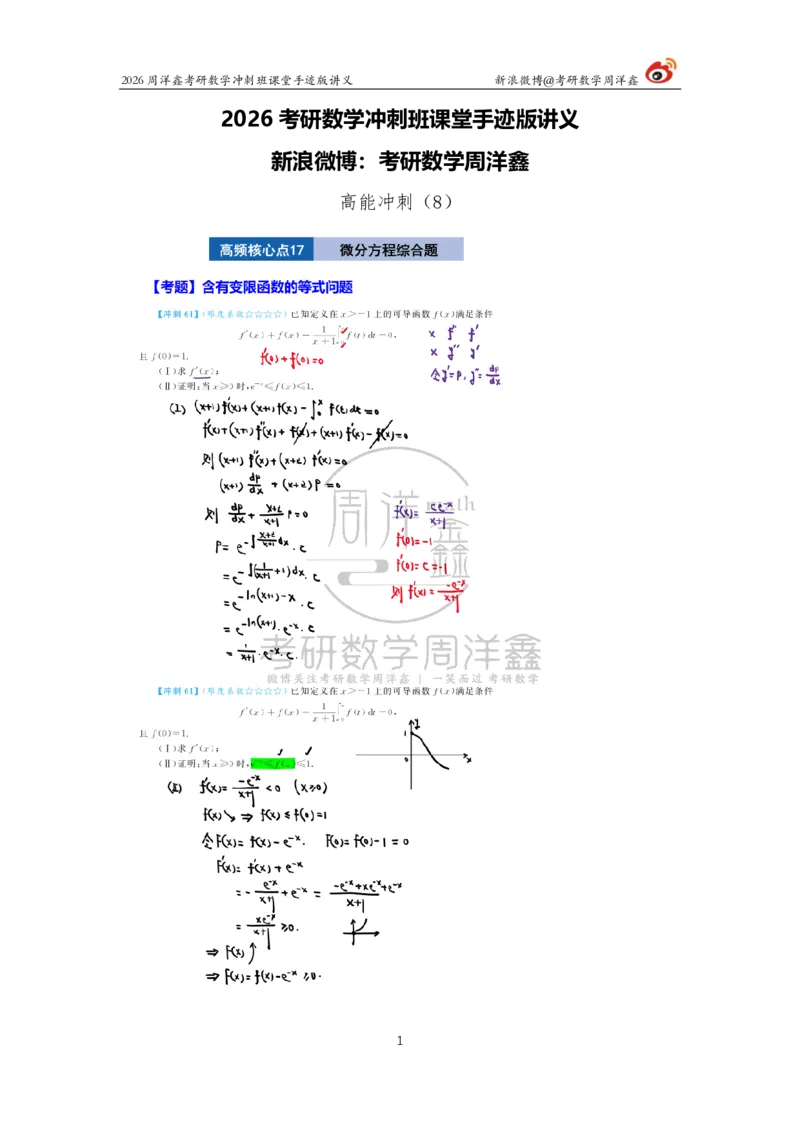 2026周洋鑫考研数学冲刺班课堂手迹版讲义 新浪微博@考研数学周洋鑫
2026 考研数学冲刺班课堂手迹版讲义
新浪微博：考研数学周洋鑫
高能冲刺（8）
高频核心点17 微分方程综合题
【考题】含有变限函数的等式问题
【冲刺 61】(难度系数☆☆☆☆)已知定义在 x>-1 上的可导函数 f(x)满足条件
f'(x)+f(x)-1/(x+1)∫₀ˣ f(t)dt=0,
x f'' f'
x y'' y'
令y'=P, y''=dp/dx
且 f(0)=1.
f'(0)+f(0)=0
(Ⅰ)求 f'(x);
(Ⅱ)证明:当 x≥0 时,e⁻ˣ≤f(x)≤1.
(I) (x+1)f'(x)+(x+1)f(x)-∫₀ˣ f(t)dt=0
f'(x)+(x+1)f''(x)+f(x)+(x+1)f'(x)-f(x)=0
则(x+1)f''(x)+(x+2)f'(x)=0
(x+1)dp/dx+(x+2)P=0
则 dp/dx+(x+2)/(x+1)P=0
P=e^(-∫(x+2)/(x+1)dx)·C
=e^(-∫(1/(x+1)+1)dx)·C
=e^(-ln(x+1)-x)·C
=e^(-ln(x+1))·e⁻ˣ·C
=1/(x+1)·e⁻ˣ·C.
f'(x)=Ce⁻ˣ/(x+1)
f'(0)=-1
f'(0)=C=-1
则f'(x)=-e⁻ˣ/(x+1)
周洋鑫
math
考研数学周洋鑫
微博关注考研数学周洋鑫 | 一笑而过 考研数学
【冲刺 61】(难度系数☆☆☆☆)已知定义在 x>-1 上的可导函数 f(x)满足条件
f'(x)+f(x)-1/(x+1)∫₀ˣ f(t)dt=0,
且 f(0)=1.
(Ⅰ)求 f'(x);
(Ⅱ)证明:当 x≥0 时,e⁻ˣ≤f(x)≤1.
y
1
0
x
(II) f'(x)=-e⁻ˣ/(x+1)<0 (x≥0)
f(x)↘ ⇒ f(x)≤f(0)=1
令F(x)=f(x)-e⁻ˣ. F(0)=f(0)-1=0
F'(x)=f'(x)+e⁻ˣ
=-e⁻ˣ/(x+1)+e⁻ˣ=(-e⁻ˣ+xe⁻ˣ+e⁻ˣ)/(x+1)
=xe⁻ˣ/(x+1)≥0.
⇒F(x)↗
⇒F(x)=f(x)-e⁻ˣ≥0.
1